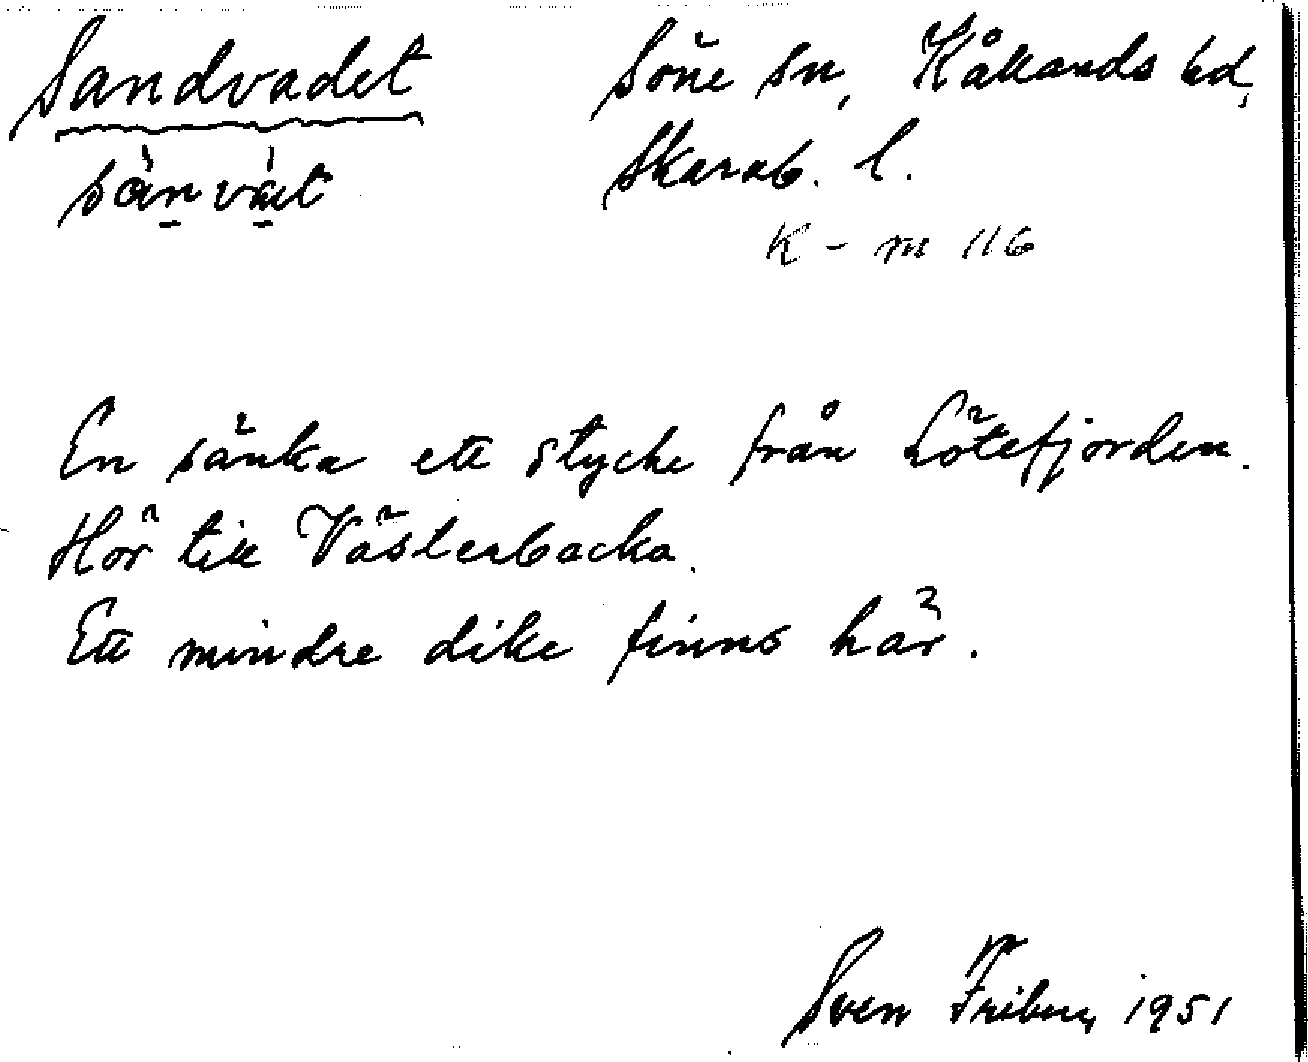 Sandvadet
Söne sn, Kållands hd,
sànvàt
Skarab. l.
K - m 116
En sänka ett stycke från Lötefjorden.
Hör till Västerbacka.
Ett mindre dike finns här.
Sven Friberg 1951